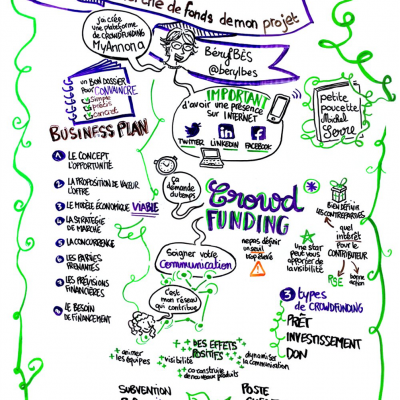 de fonds de mon projet
J'ai créé
une plateforme
de CROWDFUNDING
MyAnnona
BérylBÈS
@berylbes
un BON DOSSIER
pour CONVAINCRE
simple
précis
concret
IMPORTANT
d'avoir une présence
sur INTERNET
TWITTER
LINKEDIN
FACEBOOK
petite
poucette
Michel
Serre
BUSINESS PLAN
1 LE CONCEPT
L'OPPORTUNITÉ
2 LA PROPOSITION DE VALEUR
L'OFFRE
3 LE MODÈLE ÉCONOMIQUE VIABLE
4 LA STRATÉGIE
DE MARCHÉ
5 LA CONCURRENCE
6 LES PARTIES
PRENANTES
7 LES PRÉVISIONS
FINANCIÈRES
8 LE BESOIN
DE FINANCEMENT
Ça
demande
du temps
Crowd
FUNDING
BIEN DÉFINIR
LES CONTREPARTIES
quel
intérêt
pour le
CONTRIBUTEUR
RSE
bonne
action
une star
peut vous
apporter de
la visibilité
ne pas définir
un seuil
trop élevé
Soigner votre
Communication
c'est
mon réseau
qui contribue
3 types
de CROWDFUNDING
PRÊT
INVESTISSEMENT
DON
DES EFFETS
POSITIFS
animer
les équipes
visibilité
dynamiser
la communication
co-construire
de nouveaux produits
SUBVENTION
POSTE